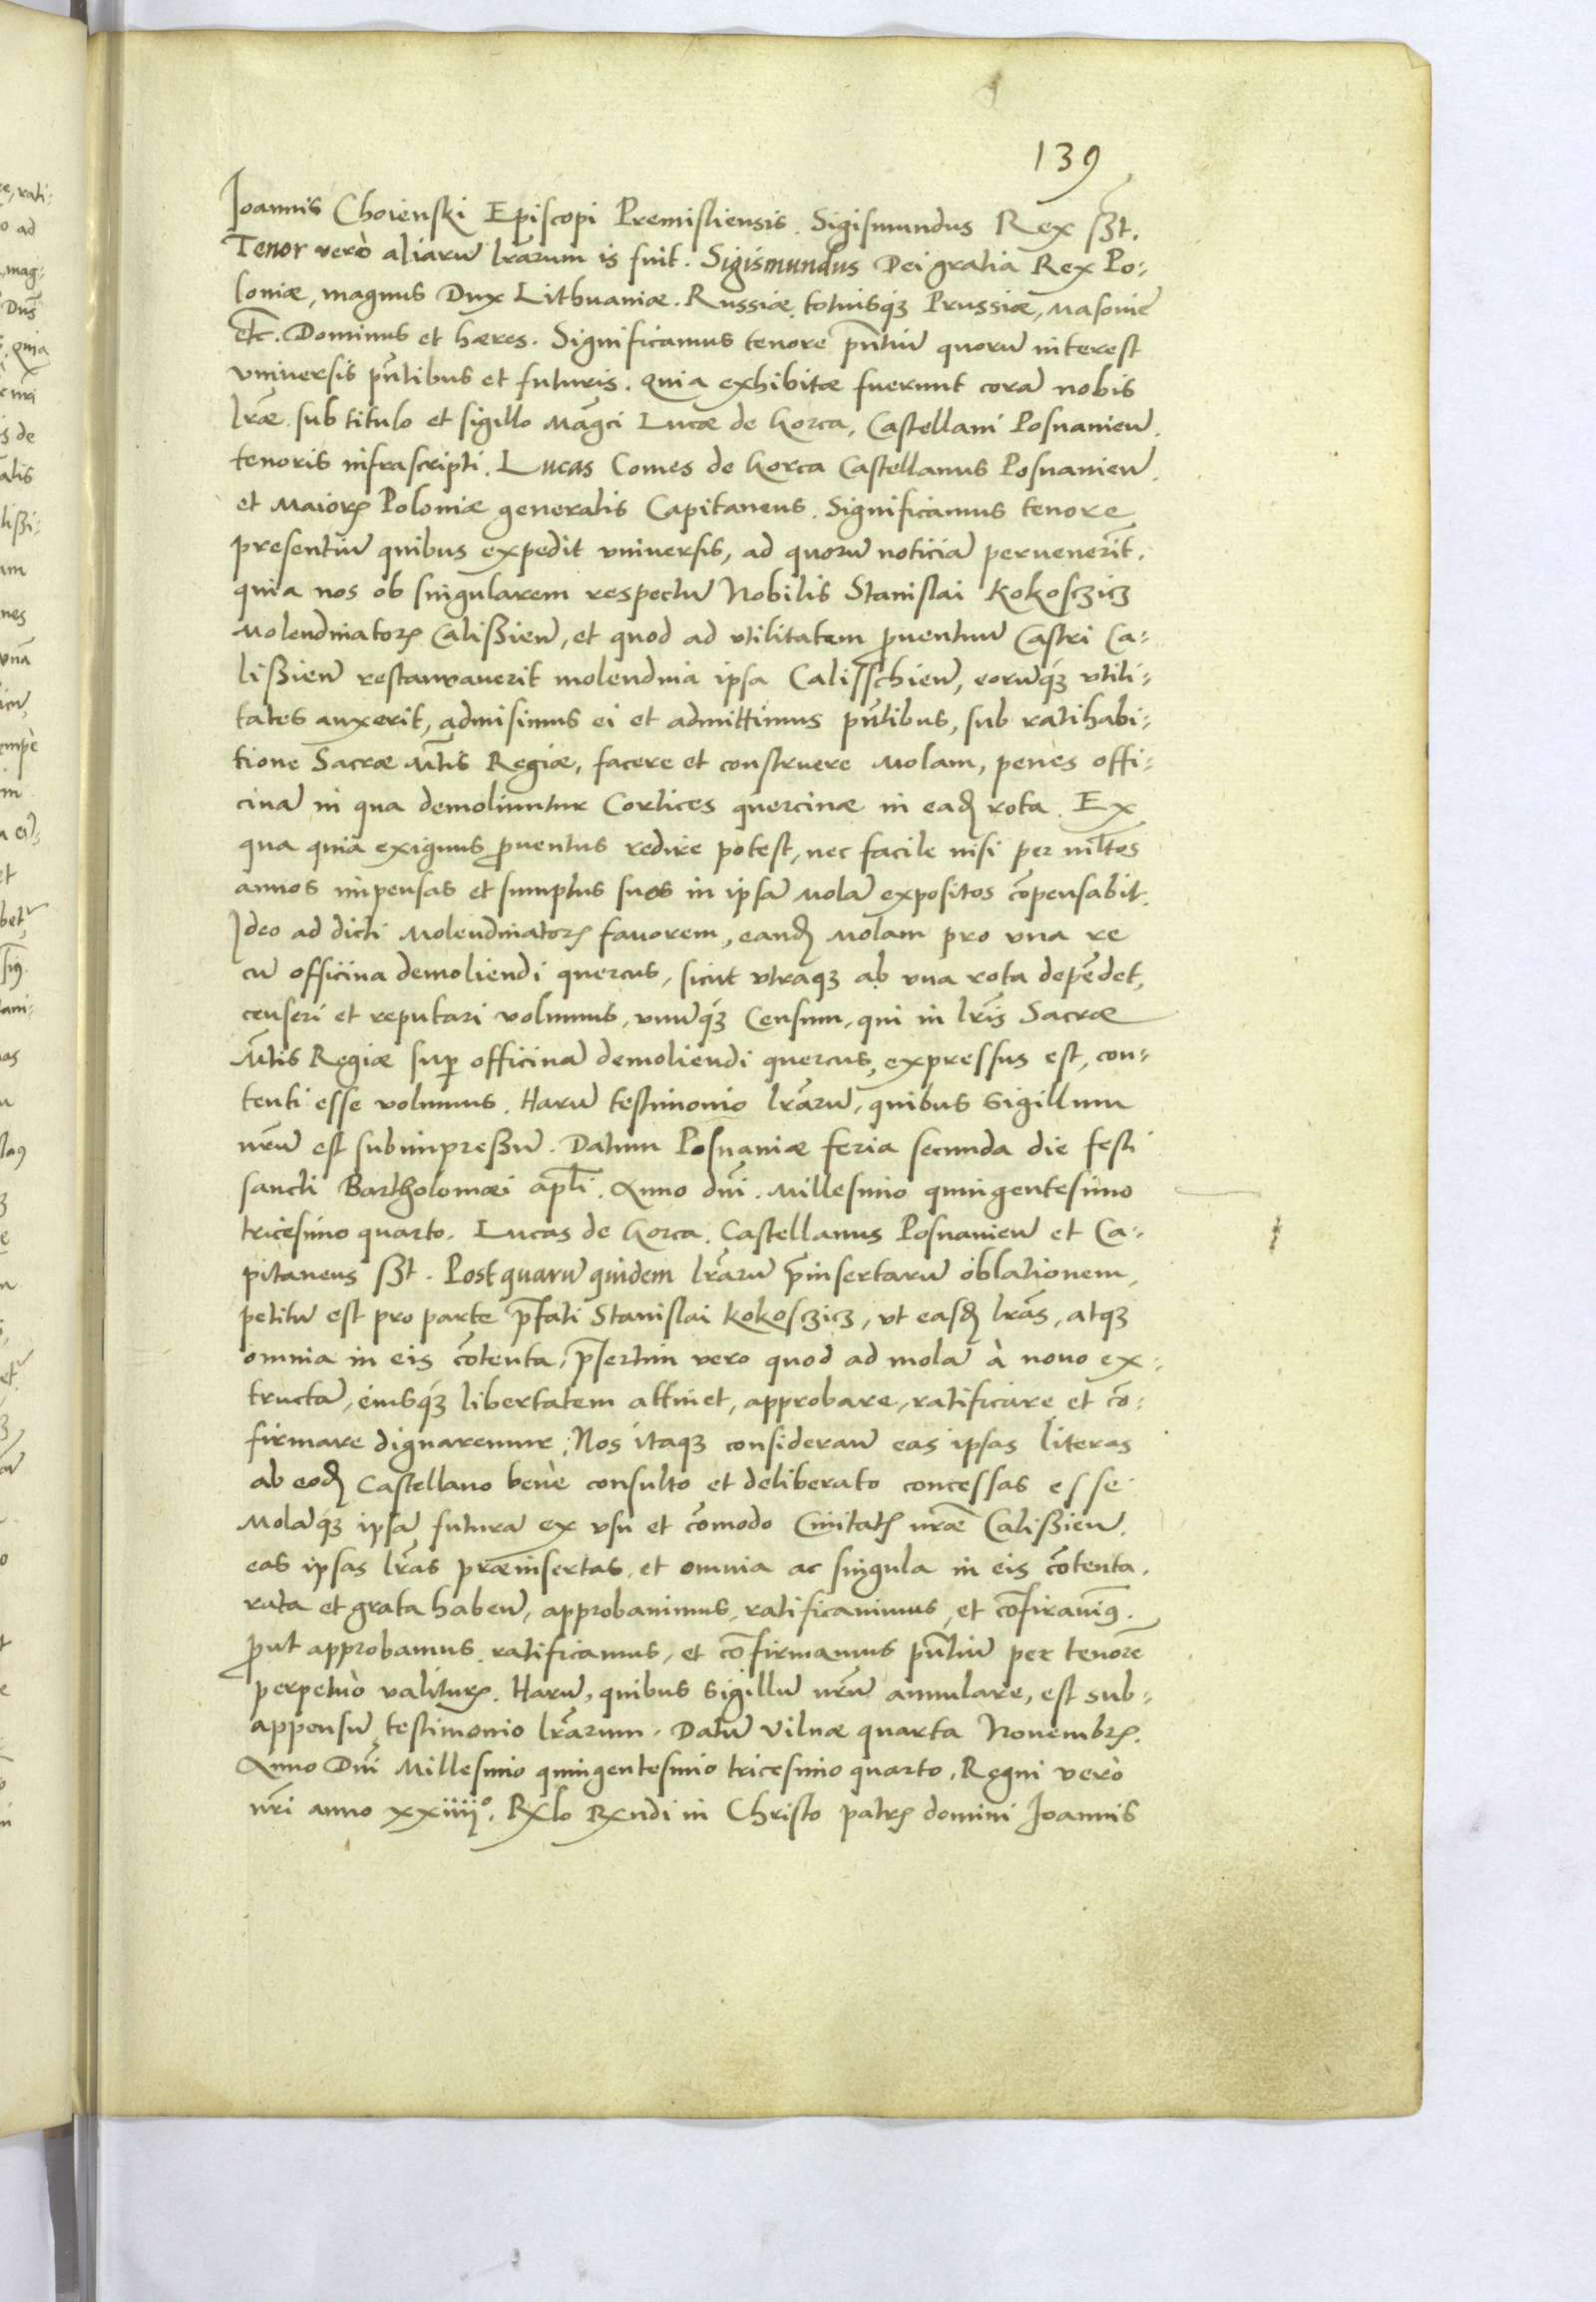 139
Ioannis Choienski Episcopi Premisliensis. Sigismundus Rex sszt.
Tenor verò aliarũ lr̃arum is fuit. Sigismundus Dei gratia Rex Po:
loniæ, magnus Dux Lithuaniæ. Russiæ, totiusq́ꝫ Prussiæ, Masoviẽ
etc. Dominus et hæres. Significamus tenore pñtiũ quorũ interest
vniuersis pñtibus et futuris. Quia exhibitæ fuerunt corã nobis
lr̃æ sub titulo et sigillo Mãgci Lucæ de Gorca, Castellani Posnanieñ.
tenoris infrascripti. Lucas Comes de Gorca Castellanus Posnanieñ.
et Maioris Poloniæ generalis Capitaneus. Significamus tenore
presentiũ quibus expedit vniuersis, ad quorũ noticiã peruenerit.
quia nos ob singularem respectũ Nobilis Stanislai Kokosczicz
Molendinatoris Calißieñ, et quod ad vtilitatem ꝓuentuũ Castri Ca-
lißieñ restaurauerit molendina ipsa Calisschieñ, eorũq́ꝫ vtili-
tates auxerit, admisimus ei et admittimus pñtibus, sub ratihabi-
tione Sacræ Mt̃is Regiæ, facere et construere Molam, penes offi-
cinã in qua demoliuntur Cortices quercinæ in eadꝫ rota. Ex
qua quia exiguus ꝓuentus redire potest, nec facile nisi per ml̃tos
annos impensas et sumptus suos in ipsã Molã expositos cõpensabit.
Ideo ad dicti Molendinatoris fauorem, eandꝫ Molam pro vna re
cũ officina demoliendi quercus, sicut vtraqꝫ ab vna rota depẽdet,
censeri et reputari volumus, vnũq́ꝫ Censum, qui in lr̃is Sacræ
Mt̃is Regiæ suꝑ officinã demoliendi quercus, expressus est, con-
tenti esse volumus. Harũ testimonio lr̃arũ, quibus sigillum
nr̃um est subimpreßũ. Datum Posnaniæ feria secunda die festi
sancti Bartholomæi apl̃i. Anno dñi. Millesimo quingentesimo
tricesimo quarto. Lucas de Gorca. Castellanus Posnanieñ et Ca-
pitaneus sszt. Post quarũ quidem lr̃arũ p̃insertarũ oblationem,
petitũ est pro parte p̃fati Stanislai Kokosczicz, vt easdꝫ lr̃as, atqꝫ
omnia in eis cõtenta, p̃sertim vero quod ad molã à nouo ex-
tructã, eiusq́ꝫ libertatem attinet, approbare, ratificare et cõ-
firmare dignaremur. Nos itaqꝫ considerañ eas ipsas literas
ab eodꝫ Castellano benè consulto et deliberato concessas esse
Molãq́ꝫ ipsã futurã ex vsu et cõmodo Ciuitatis nr̃æ Calißieñ.
eas ipsas lr̃as præinsertas, et omnia ac singula in eis cõtenta.
rata et grata habeñ, approbauimus, ratificauimus, et cõfirmauimꝰ.
ꝓut approbamus, ratificamus, et cõfirmamus pñtiũ per tenorẽ
perpetuò valituris. Harũ, quibus sigillũ nr̃um annulare, est sub-
appensũ, testimonio lr̃arum. Datũ Vilnæ quarta Nouembris.
Anno Dñi Millesimo quingentesimo tricesimo quarto. Regni verò
nr̃i anno xxiiijº. Rx̃lo Rx̃ndi in Christo patris domini Ioannis